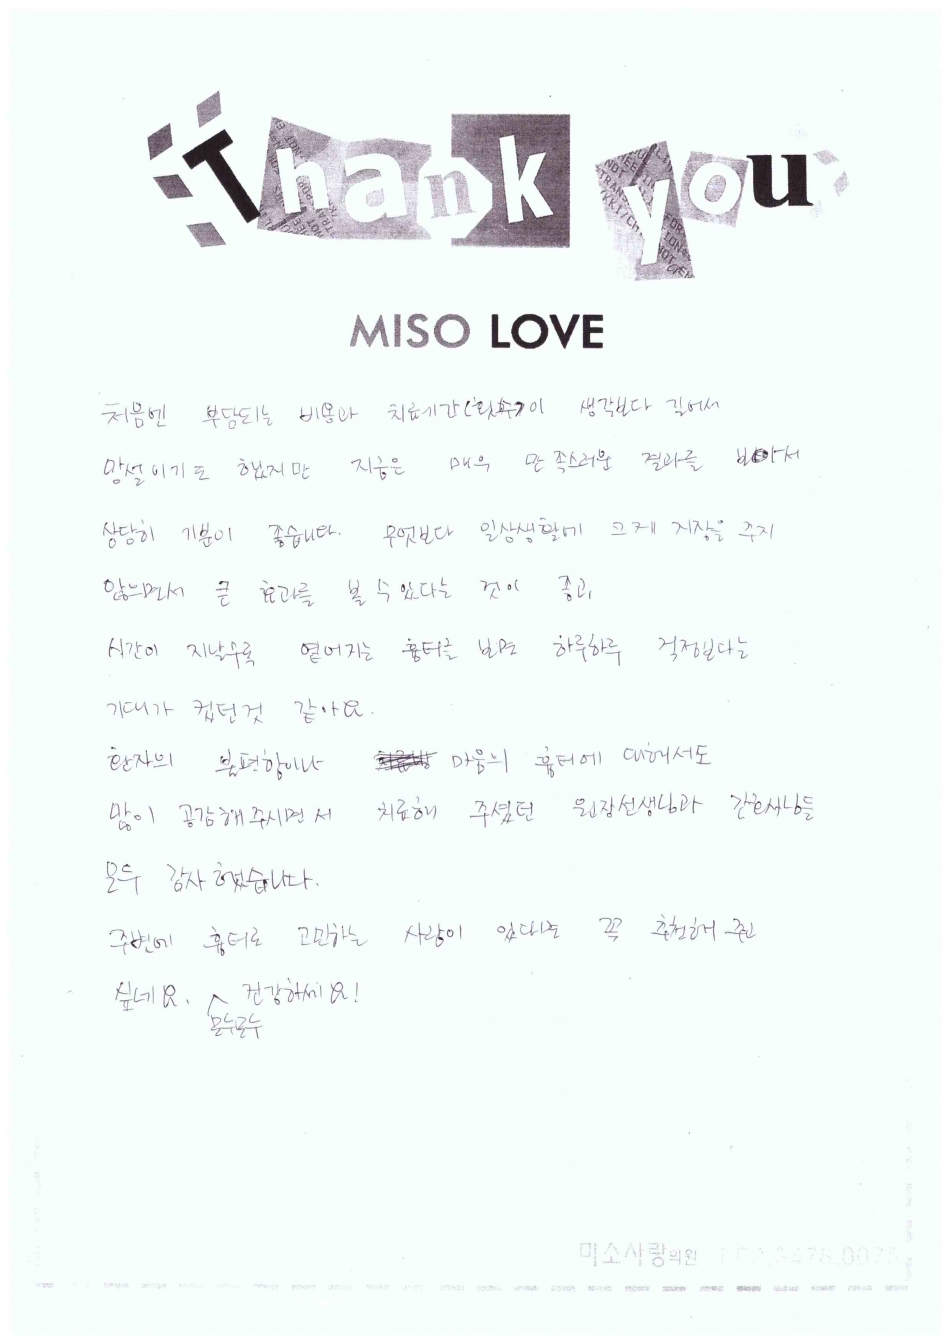 Thank you
MISO LOVE
처음엔 부담되는 비용과 치료기간(횟수)이 생각보다 길어서
망설이기도 했지만 지금은 매우 만족스러운 결과를 보아서
상당히 기분이 좋습니다. 무엇보다 일상생활에 크게 지장을 주지
않으면서 큰 효과를 볼 수 있다는 것이 좋고,
시간이 지날수록 옅어지는 흉터를 보면 하루하루 걱정보다는
기대가 컸던것 같아요.
환자의 불편함이나 마음의 흉터에 대해서도
많이 공감해주시면서 치료해 주셨던 원장선생님과 간호사님들
모두 감사했습니다.
주변에 흉터로 고민하는 사람이 있다면 꼭 추천해 주고
싶네요. 건강하세요!
모두모두
미소사랑의원